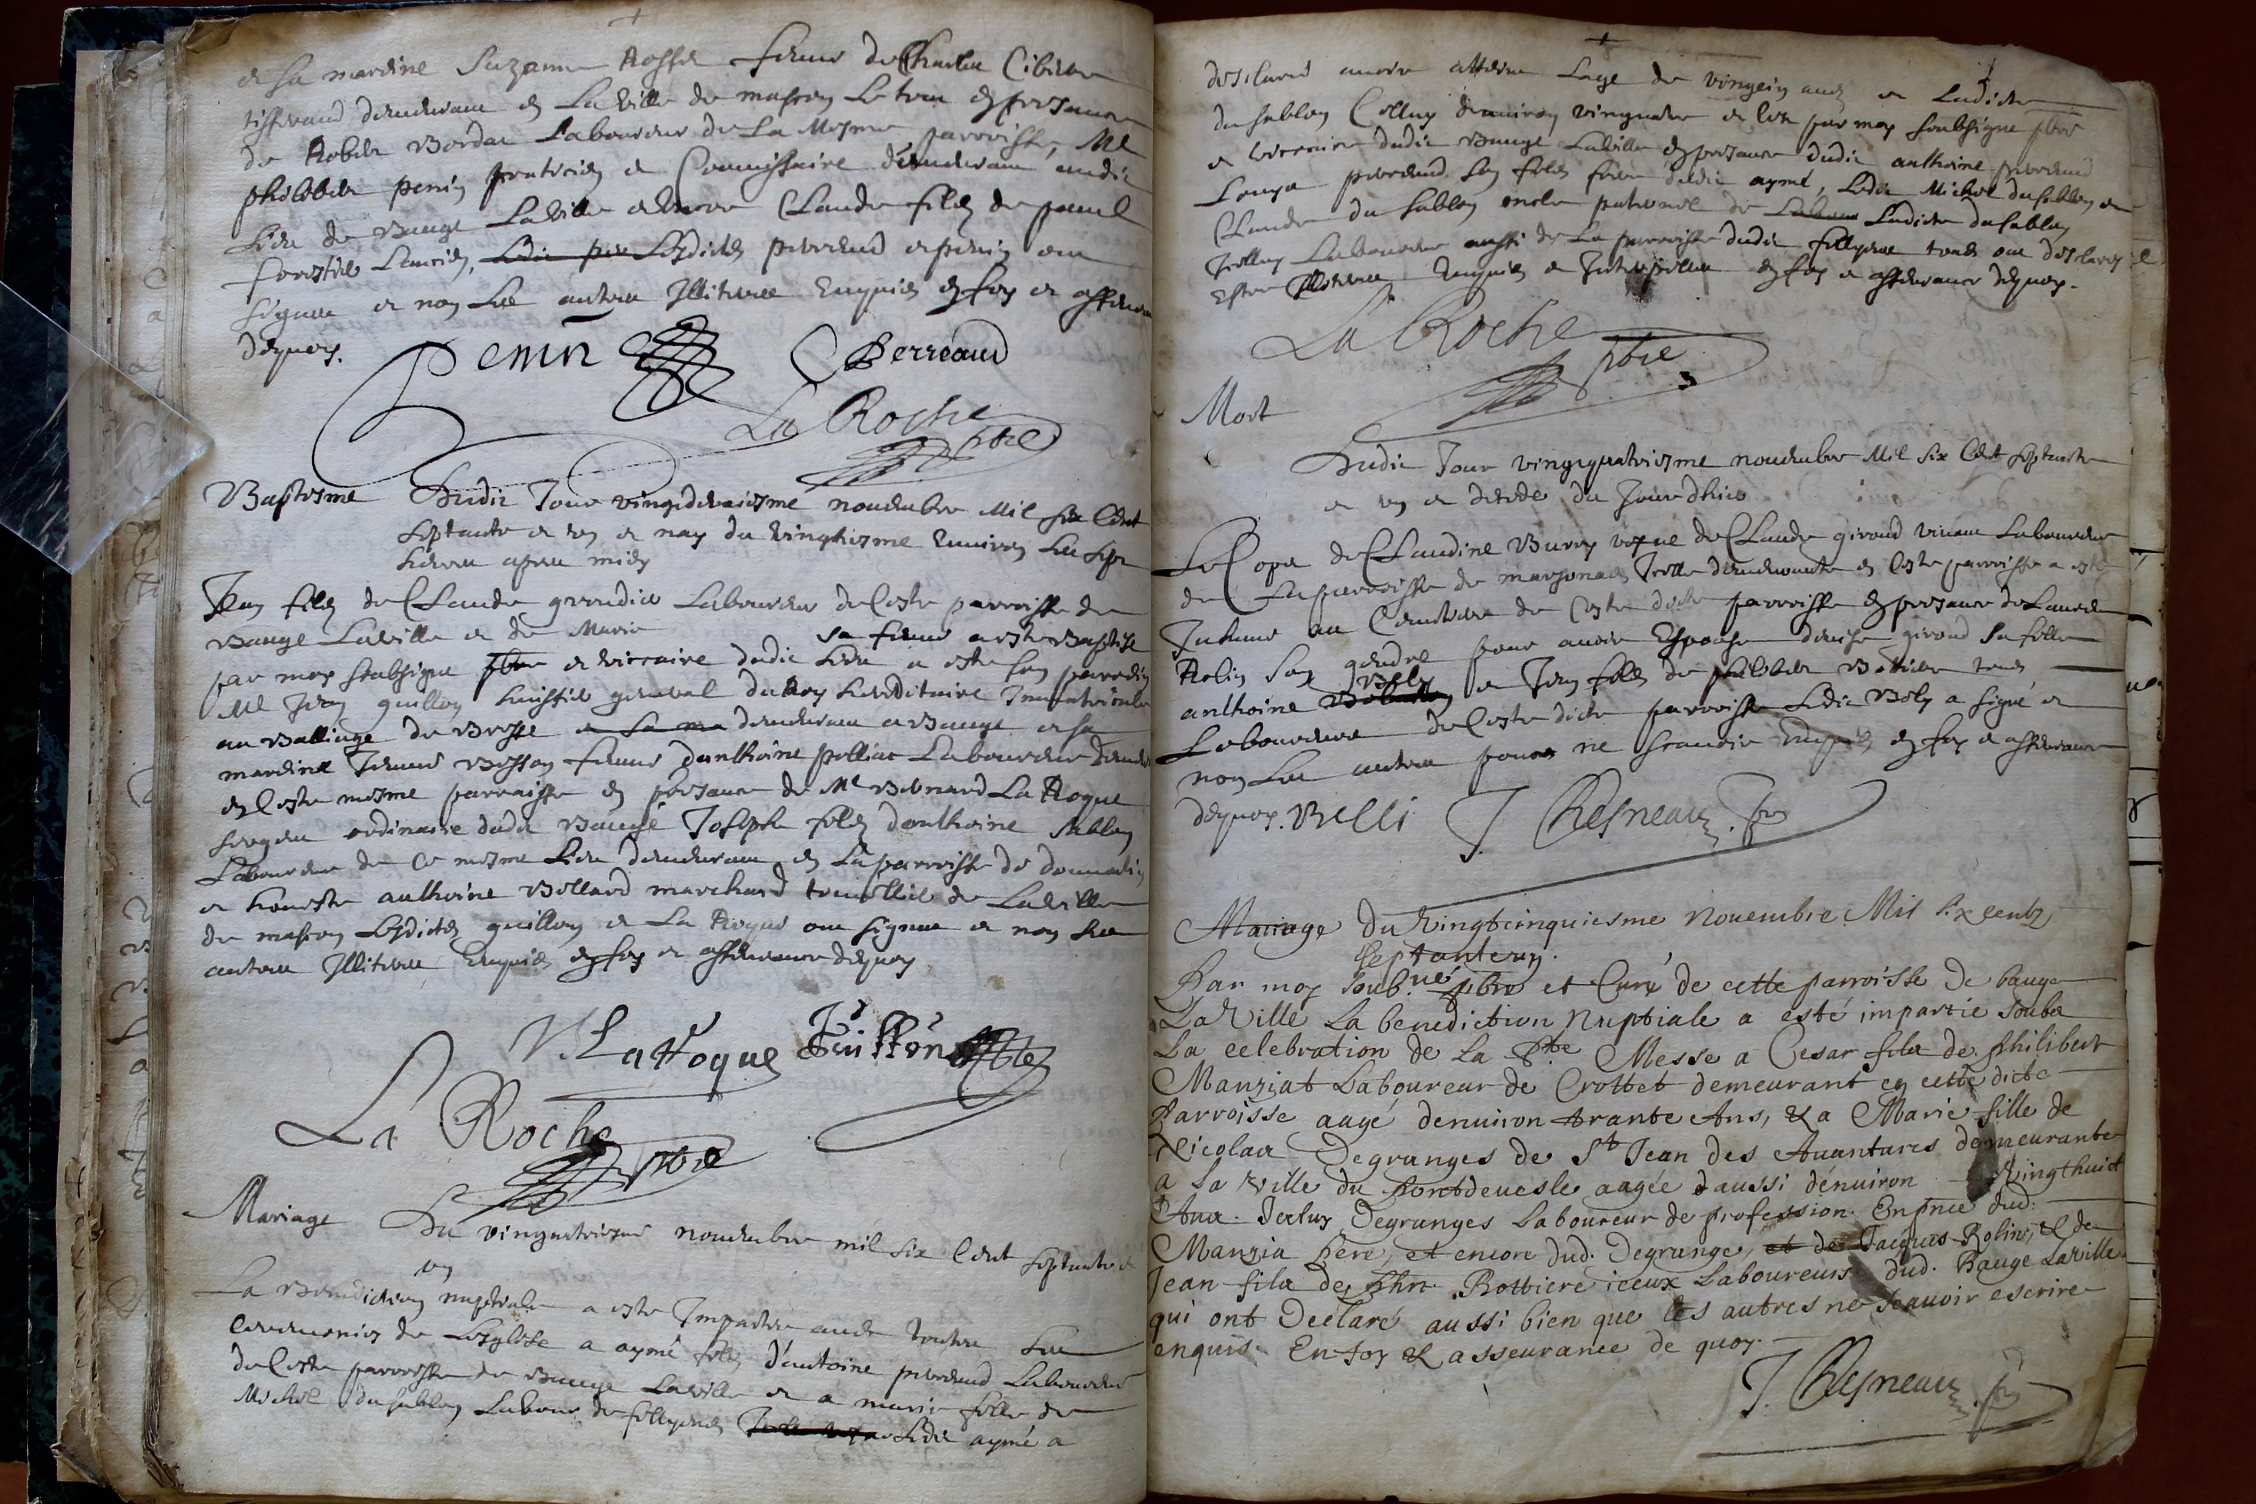 et sa mareine Suzanne femme de Charles Cibier
tisserand demeurant en La Ville de mascon Le tou en presance
de Robert Bordat Laboureur de La Mesme parroisse, Me
philibert penin praticien et Commissaire demeurant audit
Lieu de Baugé Laville et Claude filz de paul
Lesdictz perreaud et penin ont
signez et non Les autres Illiterez Enquis en foy et asseurance
dequoy.
Penin Perreaud
La Roche pbre
Baptesme Dudit Jour vingtdeuxiesme nouembre Mil six Cent
septante et un et nay du vingtiesme Enuiron Les sept
heures apres midy
Jean filz de Claude Laboureur de Ceste parroisse de
Baugé Laville et de Marie sa femme a este Baptisé
par moy soubsigné pbre et viccaire dudit Lieu a este son parrain
Me Jean guillon huissier general du Roy hereditaire Immatriculé
au Balliage de Bresse et sa ma demeurant a Baugé et sa
mareine femme danthoine polliat Laboureur
en Ceste mesme parroisse en presance de Me Bernard La Roque
sergent ordinaire dudit Baugé Joseph filz danthoine
Laboureur de Ce mesme Lieu demeurant en La parroisse de
et honneste anthoine Bollard marchand de Laville
de mascon Lesdictz guillon et La Roque ont signez et non Les
autres Illiterez Enquis en foy et asseurance dequoy
La Roque Guillon
La Roche pbre
Mariage Du vingtquatriesme nouembre mil six Cent septante et
un
La Benediction nuptiale a este Impartie auec toutes Les
Ceremonies de Lesglise a aymé filz d'antoine perreaud Laboureur
de Ceste parroisse de Baugé Laville et a marie fille de
Michel du sablon Labour de Ledit aymé a
desclaré auoir atteint Lage de vingt ans et Ladicte
du sablon Celluy denuiron vingtquatre et Ce par moy soubsigné pbre
et viccaire dudit Baugé Laville en presance dudit anthoine perreaud
Louys perreaud son filz frere dudit aymé, Ledit Michel du sablon et
Claude du sablon oncle paternel de Ladicte du sablon
Laboureur aussi de La parroisse dudit tous ont desclaré
Estre Illiterez Enquis et Interpellez en foy et asseurance dequoy.
La Roche pbre
Mort
Dudit Jour vingtquatriesme nouembre Mil six Cent septante
et un et decede du Jourdhuy
Le Corps de Claudine Burry vefue de Claude giroud viuant Laboureur
de La parroisse de marsonas Icelle demeurante en Ceste parroisse a este
Inhumé au Cemitiere de Ceste dicte parroisse en presance de Laurent
Rolin son gendre pour auoir Espousé denise giroud sa fille
anthoine Bely et Jean filz de philibert Bottier tous
Laboureurs de Ceste dicte parroisse Ledit Bely a signé et
non Les autres pour ne scauoir Enquis en foy et asseurance
dequoy. Belli J. Chesneau pbr
Mariage du Vingtcinquiesme Nouembre Mil six centz
septanteun.
Par moy soub.né pbre et Curé de cette parroisse de bauge
La Ville La benediction Nuptiale a esté impartie soubz
La celebration de La Ste Messe a Cesar filz de Philibert
Manziat Laboureur de Crottet demeurant en cette dicte
Parroisse aagé denuiron trante Ans, et a Marie fille de
Nicolas Degranges de St Jean des Auantures demeurante
a La Ville du Pontdeuesle aagée daussi denuiron Vingthuict
Ans. Iceluy Degranges Laboureur de profession. En pnce dud.
Manzia Pere, et encore dud. Degrange, et de Jacques Rolin, et de
Jean filz de Phr. Bottiere iceux Laboureurs dud. Bauge LaVille
qui ont Declaré aussi bien que les autres ne scauoir escrire
enquis. En foy et asseurance de quoy.
J. Chesneau pbr